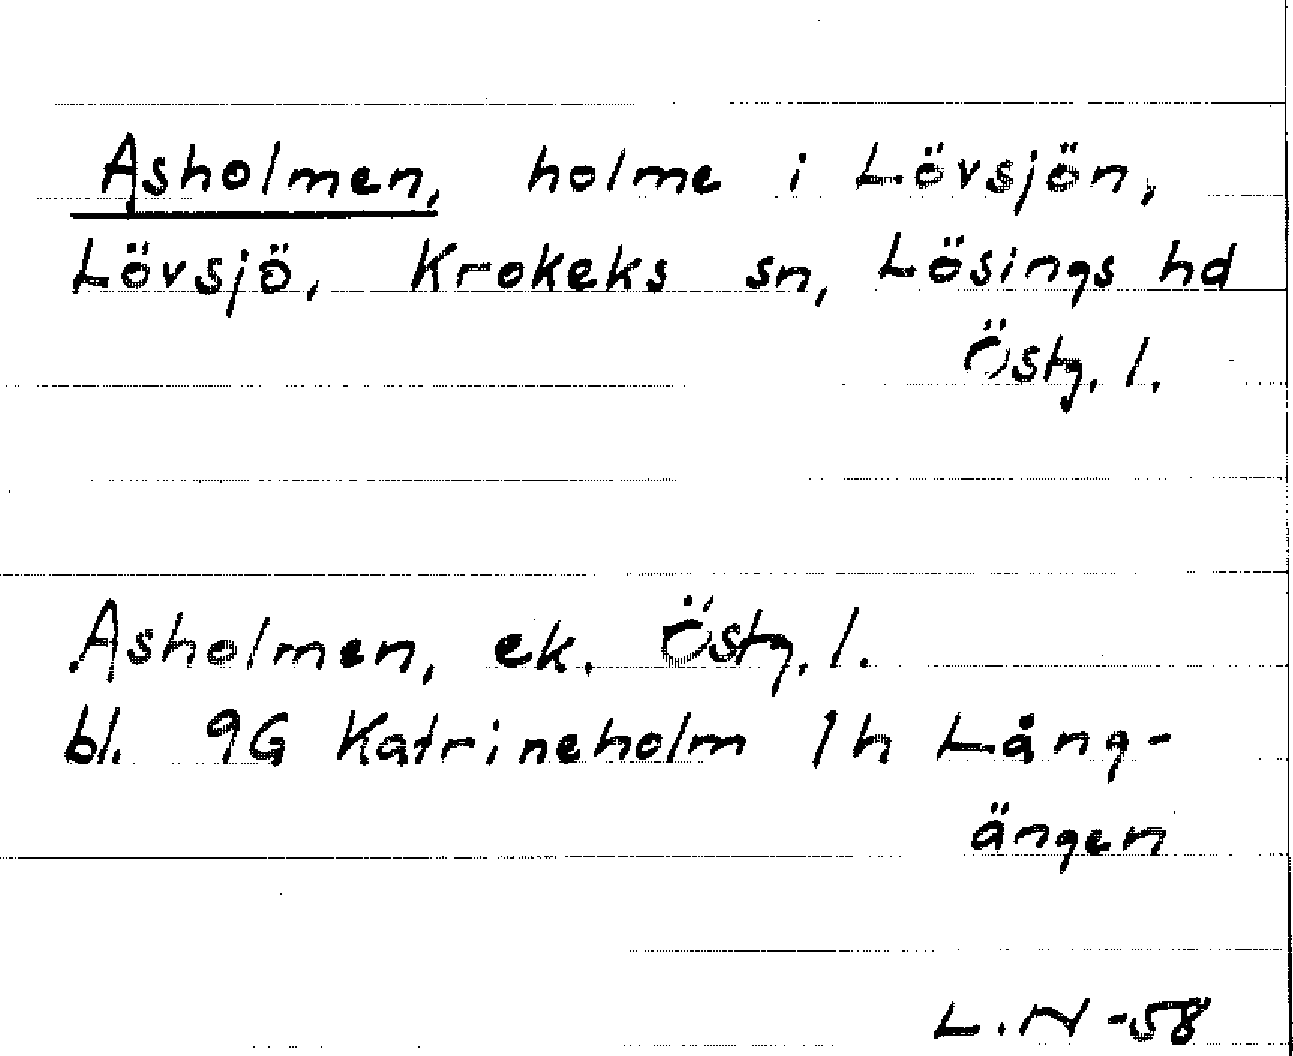 Asholmen, holme i Lövsjön,
Lövsjö, Krokeks sn, Lösings hd
Östg. l.
Asholmen, ek. Östg. l.
bl. 9G Katrineholm 1h Lång-
ängen
L.N -58